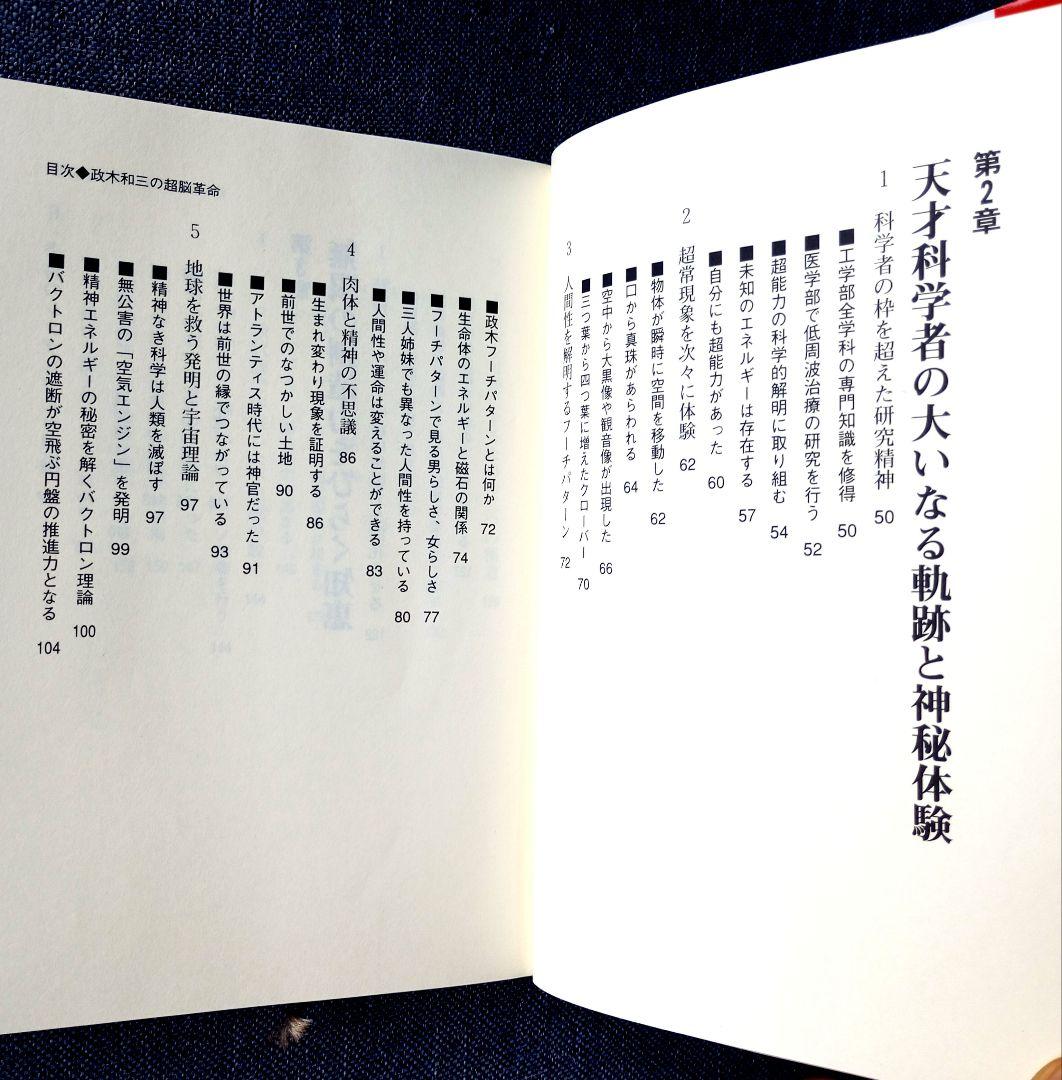 第2章
天才科学者の大いなる軌跡と神秘体験
1 科学者の枠を超えた研究精神 50
■工学部全学科の専門知識を修得 50
■医学部で低周波治療の研究を行う 52
■超能力の科学的解明に取り組む 54
■未知のエネルギーは存在する 57
■自分にも超能力があった 60
2 超常現象を次々に体験 62
■物体が瞬時に空間を移動した 62
■口から真珠があらわれる 64
■空中から大黒像や観音像が出現した 66
■三つ葉から四つ葉に増えたクローバー 70
3 人間性を解明するフーチパターン 72
■政木フーチパターンとは何か 72
■生命体のエネルギーと磁石の関係 74
■フーチパターンで見る男らしさ、女らしさ 77
■三人姉妹でも異なった人間性を持っている 80
■人間性や運命は変えることができる 83
4 肉体と精神の不思議 86
■生まれ変わり現象を証明する 86
■前世でのなつかしい土地 90
■アトランティス時代には神官だった 91
■世界は前世の縁でつながっている 93
5 地球を救う発明と宇宙理論 97
■精神なき科学は人類を滅ぼす 97
■無公害の「空気エンジン」を発明 99
■精神エネルギーの秘密を解くバクトロン理論 100
■バクトロンの遮断が空飛ぶ円盤の推進力となる 104
目次◆政木和三の超脳革命